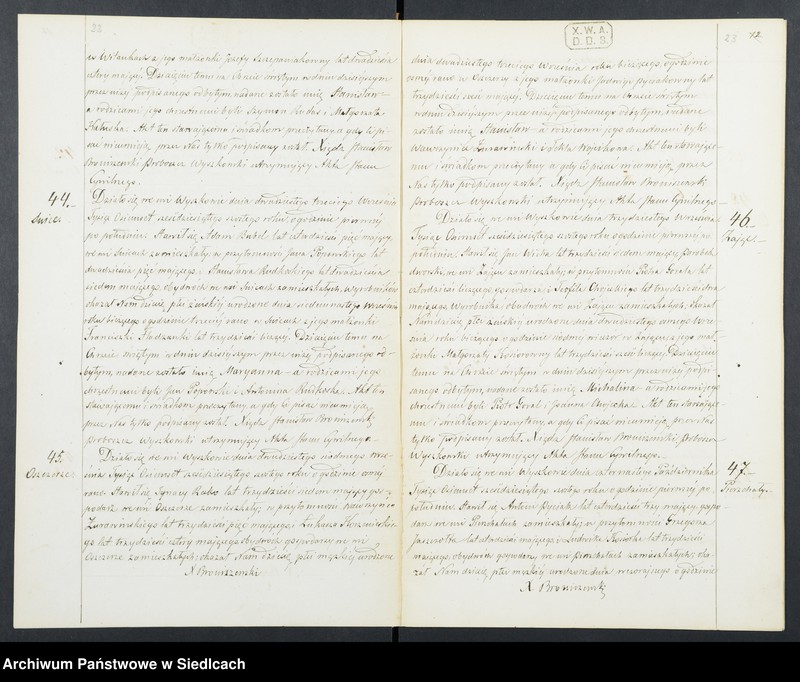 22
w Witankach z jego małżonki Józefy Szczepankowny lat dwadzieścia
cztery mającej. Dziecięciu temu na Chrzcie świętym w dniu dzisiejszym
przez niżej podpisanego odbytym nadane zostało imię Stanisław
a rodzicami jego chrzestnemi byli Szymon Kudaś i Małgorzata
Akt ten stawającemu i świadkom przeczytany, a gdy Ci pi-
sać nieumieją, przez Nas tylko podpisany został. Xiądz Stanisław
Broniszewski Proboszcz Wyszkowski utrzymujący Akta Stanu
Cywilnego.
44.
Świecz
Działo się we wsi Wyszkowie dnia dwudziestego trzeciego Września
Tysiąc Ośmset sześćdziesiątego szóstego roku, o godzinie pierwszej
po południu. Stawił się Adam Bubel lat czterdzieści pięć mający,
we wsi zamieszkały, w przytomności Jana Popowskiego lat
dwadzieścia pięć mającego i Stanisława Rudkockiego lat dwadzieścia
siedem mającego, obydwóch we wsi zamieszkałych, wyrobników
okazał Nam dziecię płci żeńskiej urodzone dnia siedemnastego Września
roku bieżącego o godzinie trzeciej rano w z jego małżonki
Franciszki lat trzydzieści liczącej. Dziecięciu temu na
Chrzcie świętym w dniu dzisiejszym przez niżej podpisanego od-
bytym, nadane zostało imię Maryanna a rodzicami jego
chrzestnemi byli Jan Popowski i Antonina Rudkocka. Akt ten
stawającemu i świadkom przeczytany, a gdy Ci pisać nieumieją,
przez Nas tylko podpisany został. Xiądz Stanisław Broniszewski
Proboszcz Wyszkowski utrzymujący Akta Stanu Cywilnego.
45.
Działo się we wsi Wyszkowie dnia dwudziestego siódmego Wrze-
śnia Tysiąc Ośmset sześćdziesiątego szóstego roku o godzinie ósmej
rano. Stawił się Ignacy Kubo lat trzydzieści siedem mający gos-
podarz we wsi zamieszkały, w przytomności Wawrzyńca
Żurawińskiego lat trzydzieści pięć mającego, i Łukasza
go lat trzydzieści cztery mającego obydwóch gospodarzy we wsi
zamieszkałych, okazał Nam dziecię płci męzkiej urodzone
X Broniszewski
X.W.A.
D.D.S.
23
dnia dwudziestego trzeciego Września roku bieżącego, o godzinie
ósmej rano w z jego małżonki Jadwigi lat
trzydzieści sześć mającej. Dziecięciu temu na Chrzcie świętym
w dniu dzisiejszym przez niżej podpisanego odbytym, nadane
zostało imię Stanisław a rodzicami jego chrzestnemi byli
Wawrzyniec Żurawiński i Akt ten stawające-
mu i świadkom przeczytany a gdy Ci pisać nieumieją, przez
Nas tylko podpisany został. Xiądz Stanisław Broniszewski
Proboszcz Wyszkowski utrzymujący Akta Stanu Cywilnego.
46.
Zając
Działo się we wsi Wyszkowie dnia trzydziestego Września
Tysiąc Ośmset sześćdziesiątego szóstego roku o godzinie pierwszej po
południu. Stawił się Jan lat trzydzieści siedem mający, Parobek
dworski, we wsi Zającu zamieszkały, w przytomności Piotra Gorala lat
czterdzieści liczącego gospodarza i Teofila lat trzydzieści
mającego, Wyrobnika, obydwóch we wsi Zającu zamieszkałych, okazał
Nam dziecię płci żeńskiej urodzone dnia dwudziestego ósmego Wrze-
śnia roku bieżącego o godzinie siódmej wieczór w Zającu z jego mał-
żonki Małgorzaty lat trzydzieści liczącej. Dziecięciu
temu na Chrzcie świętym w dniu dzisiejszym przez niżej podpi-
sanego odbytym, nadane zostało imię Michalina a rodzicami jego
chrzestnemi byli Piotr Goral i Joanna Akt ten stawające-
mu i świadkom przeczytany, a gdy Ci pisać nieumieją, przez Nas
tylko podpisany został. Xiądz Stanisław Broniszewski, Proboszcz
Wyszkowski utrzymujący Akta Stanu Cywilnego.
47.
Działo się we wsi Wyszkowie dnia czternastego Października
Tysiąc Ośmset sześćdziesiątego szóstego roku o godzinie pierwszej po
południu. Stawił się Antoni Pyciak lat czterdzieści trzy mający, gospo-
darz we wsi zamieszkały, w przytomności Grzegorza
Jaszczołta lat czterdzieści mającego, i Ludwika lat trzydzieści
mającego, obydwóch gospodarzy we wsi zamieszkałych, oka-
zał Nam dziecię płci męzkiej urodzone dnia wczorajszego o godzinie
X Broniszewski
Archiwum Państwowe w Siedlcach